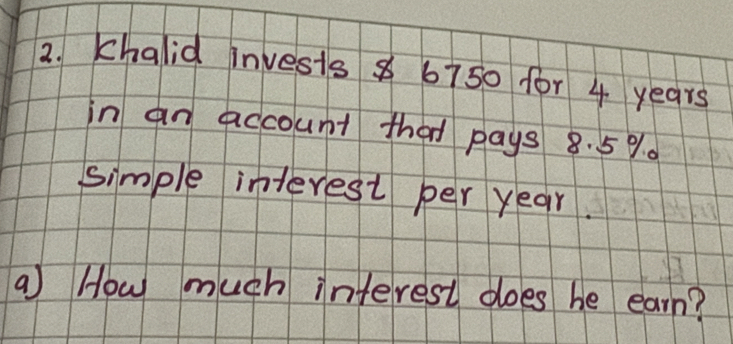 2. Khalid invests $ 6750 for 4 years
in an account that pays 8.5%
simple interest per year.
a) How much interest does he earn?